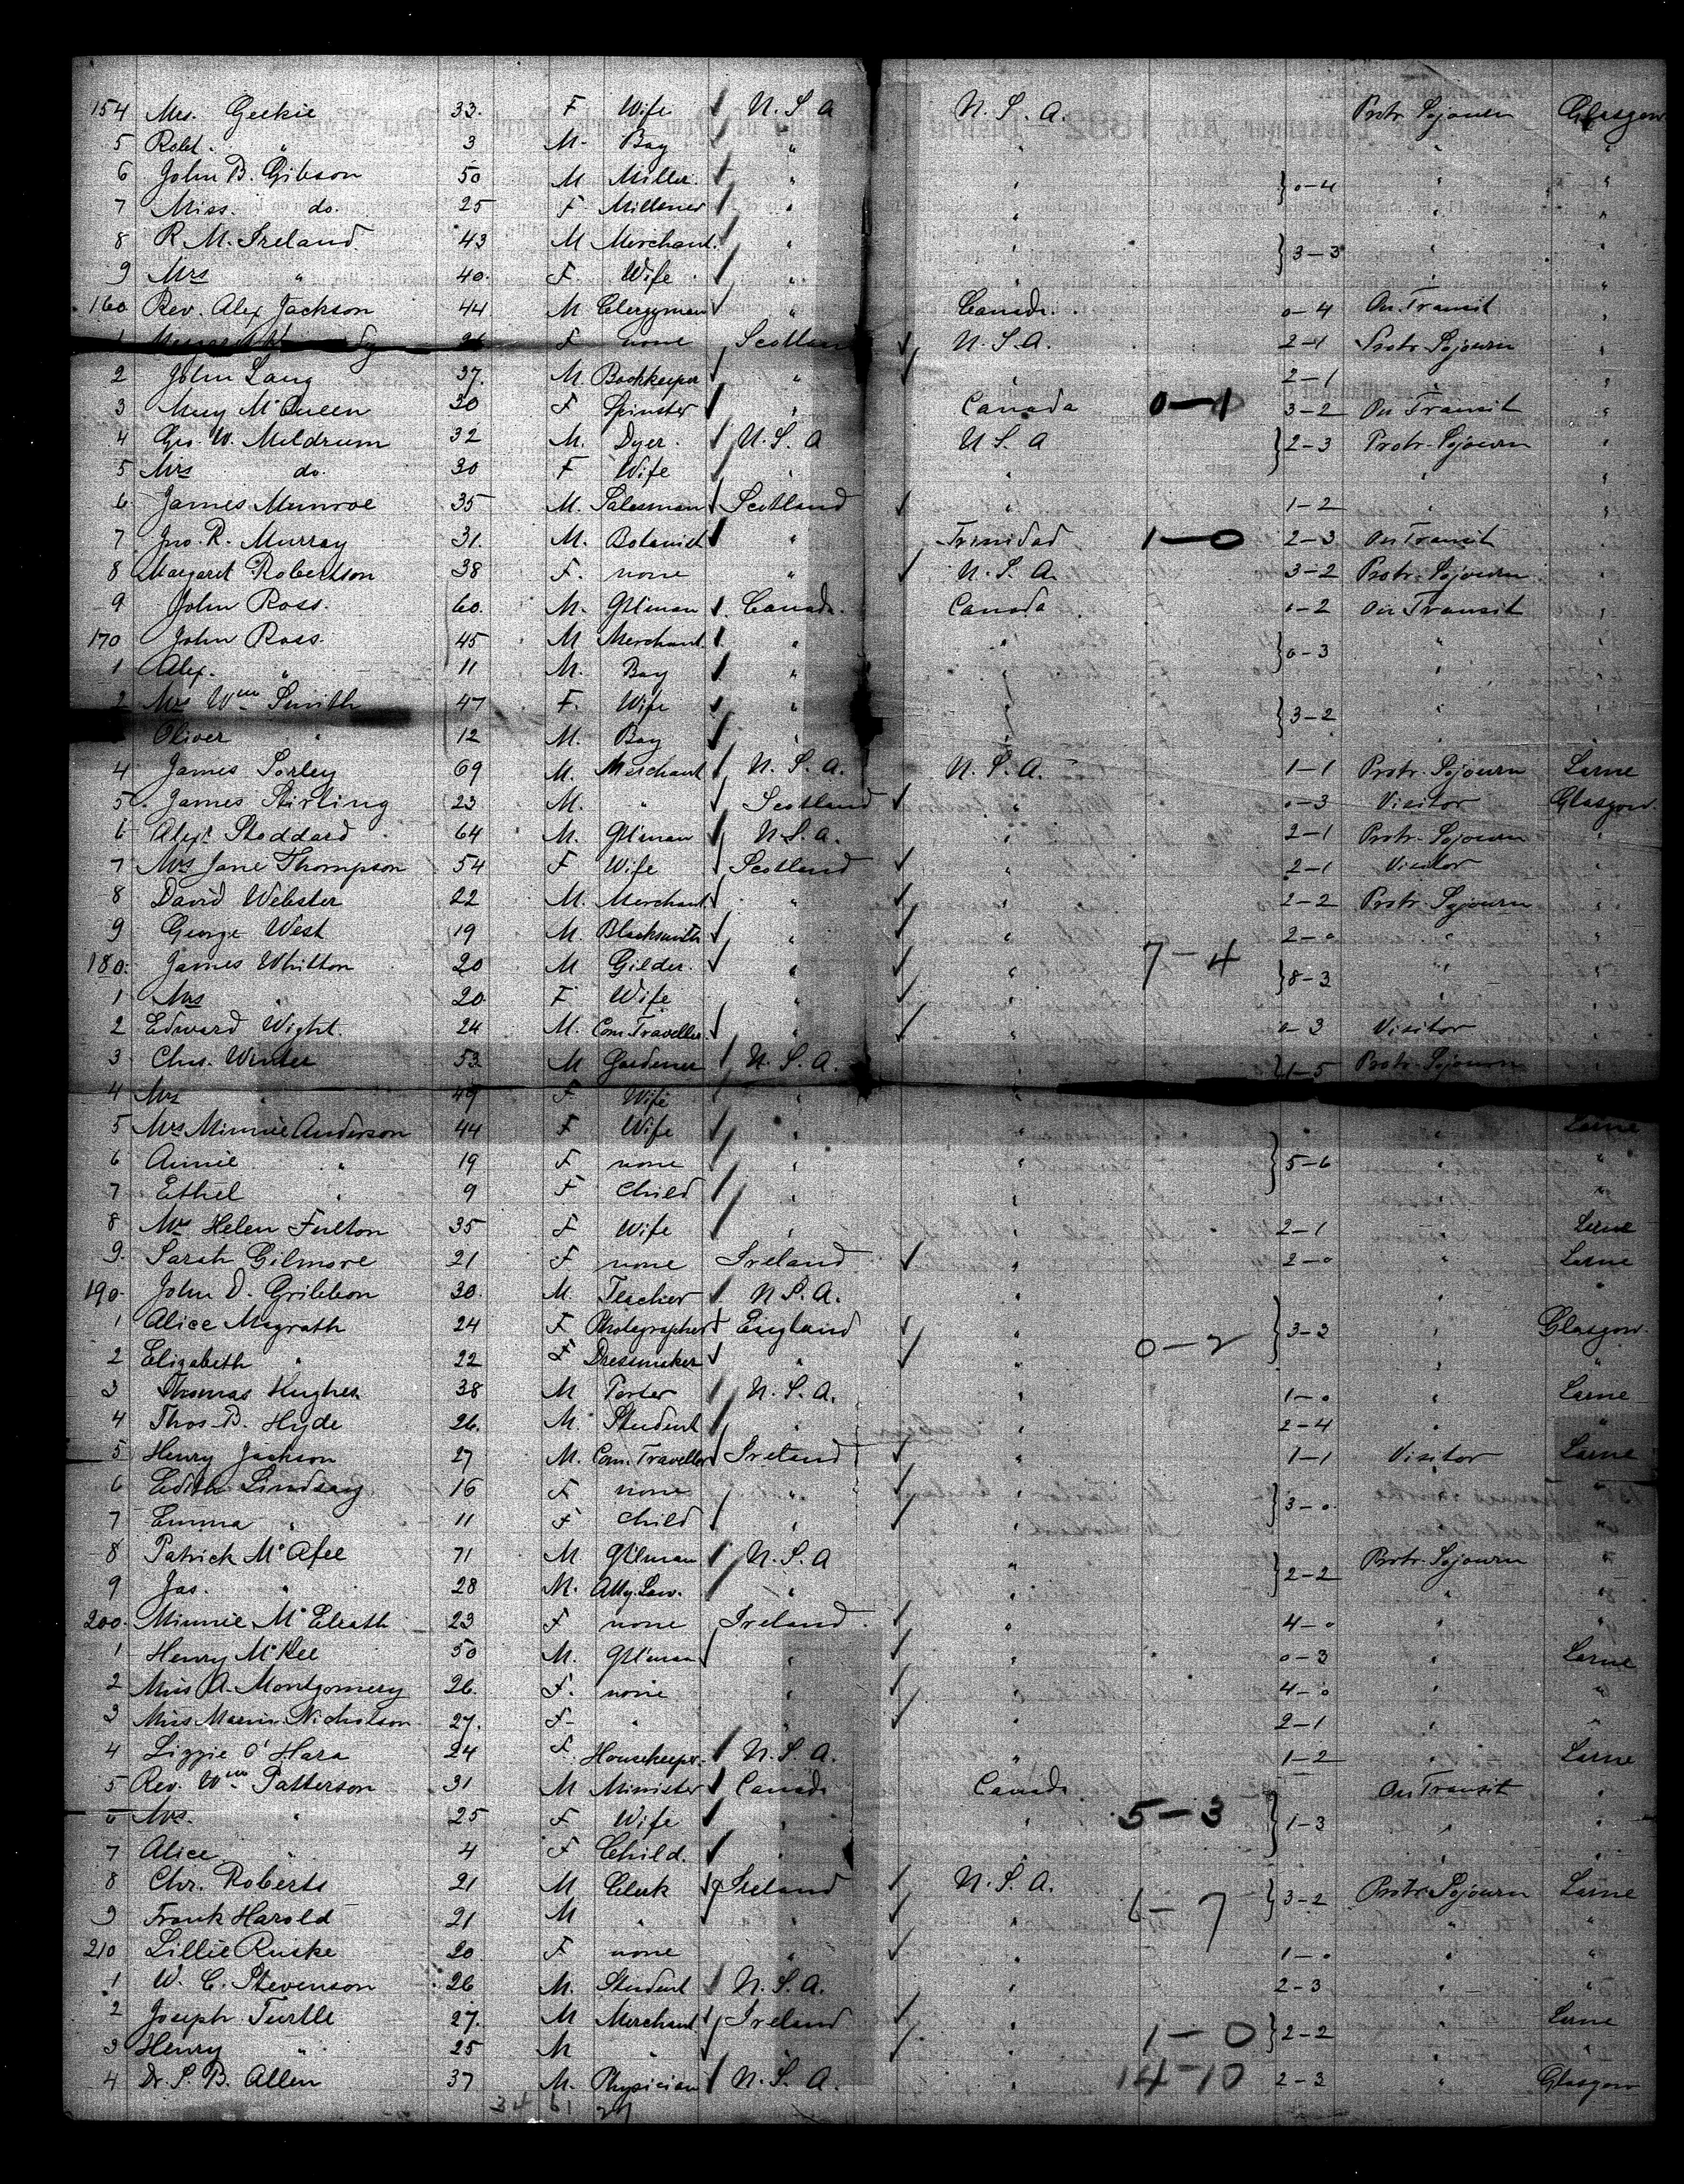 154 Mrs. Geekie 33. F Wife U.S.A U.S.A. Protr. Sojourn Glasgow
5 Robt. " 3 M. Boy " " " "
6 John B. Gibson 50 M Miller. " " 0-4 " "
7 Miss. do. 25 F Milliner " " " "
8 R. M. Ireland 43 M Merchant. " " 3-3 " "
9 Mrs " 40. F. Wife " " " "
160 Rev. Alex Jackson 44 M Clergyman " Canada. 0-4 On Transit "
1 Margaret 26 F none Scotland U.S.A. 2-1 Protr. Sojourn "
2 John Lang 37. M. Bookkeeper " " 2-1 " "
3 Mary McQueen 30 F Spinster " Canada 0-1 3-2 On Transit "
4 Geo. W. Meldrum 32 M. Dyer. U.S.A U.S.A 2-3 Protr. Sojourn "
5 Mrs do. 30 F Wife " " " "
6 James Munroe 35 M. Salesman Scotland " 1-2 " "
7 Jno. R. Murray 31. M. Botanist " Trinidad 1-0 2-3 On Transit "
8 Margaret Robertson 38 F. none " U.S.A. 3-2 Protr. Sojourn "
9 John Ross. 60. M. Gtl'man Canada. Canada 1-2 On Transit "
170 John Ross. 45 M Merchant. " " 0-3 " "
1 Alex. " 11 M. Boy " " "
2 Mrs Wm Smith 47 F. Wife " 3-2 " "
Oliver " 12 M. Boy " "
4 James Sorley 69 M. Merchant U.S.A. U.S.A. 1-1 Protr. Sojourn Larne
5. James Stirling 23 M. " Scotland " 0-3 Visitor Glasgow.
6 Alexr Stoddard 64 M. Gtl'man U.S.A. " 2-1 Protr. Sojourn "
7 Mrs Jane Thompson 54 F Wife Scotland " 2-1 Visitor "
8 David Webster 22 M. Merchant " " 2-2 Protr. Sojourn "
9 George West 19 M. Blacksmith " " 2-0 " "
180. James Whitton 20 M Gilder. " " 7-4 8-3 " "
1 Mrs " 20 F Wife " "
2 Edward Wight. 24 M. Com. Traveller. " " 0-3 Visitor "
3 Chas. Winter 53. M Gardener U.S.A. 1-5 Protr. Sojourn "
4 Mrs " 49 F Wife "
5 Mrs Minnie Anderson 44 F Wife " " " Larne
6 Annie " 19 F none " " 5-6 " "
7 Ethel " 9 F Child " " " "
8 Mrs Helen Fulton 35 F Wife " " 2-1 " Larne
9. Sarah Gilmore 21 F none Ireland " 2-0 " Larne
190. John D. Gribbon 30. M Teacher U.S.A. " " "
1 Alice Magrath 24 F Photographer England " 0-2 3-3 " Glasgow.
2 Elizabeth " 22 F Dressmaker " " " "
3 Thomas Hughes 38 M Porter U.S.A. " 1-0 " Larne
4 Thos. B. Hyde 26. M. Student " " 2-4 " "
5 Henry Jackson 27 M. Com. Traveller Ireland " 1-1 Visitor Larne
6 Edith Lindsay 16 F none " " 3-0 "
7 Emma " 11 F Child " " "
8 Patrick McAfee 71 M Gtl'man U.S.A " 2-2 Protr. Sojourn "
9 Jas. " 28 M. Atty. Law. " " " "
200. Minnie McEleath 23 F none Ireland " 4-0 " "
1 Henry McKee 50 M. Gtl'man " " 0-3 " Larne
2 Miss A. Montgomery 26. F. none " " 4-0 " "
3 Miss Nicholson 27. F- " " " 2-1 " "
4 Lizzie O'Hara 24 F. Housekeepr. U.S.A. " 1-2 " Larne
5 Rev. Wm Patterson 31 M Minister Canada Canada On Transit "
6 Mrs. " 25 F Wife " " 5-3 1-3 " "
7 Alice " 4 F Child. " " "
8 Chr. Roberts 21 M Clerk Ireland U.S.A. 6-7 3-2 Protr. Sojourn Larne
9 Frank Harold 21 M " " " " "
210 Lillie Ruske 20 F none " " 1-0 " "
1 W. C. Stevenson 26 M. Student U.S.A. " 2-3 " "
2 Joseph Turtle 27. M Merchant Ireland " 1-0 2-2 " Larne
3 Henry " 25 M " " " " "
4 Dr. S. B. Allen 37 M. Physician U.S.A. " 14-10 2-3 " Glasgow
34 61